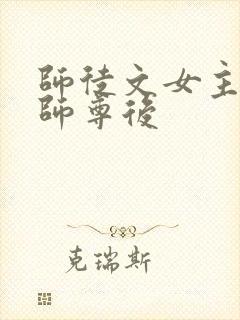 師徒文女主
師尊後
克瑞斯